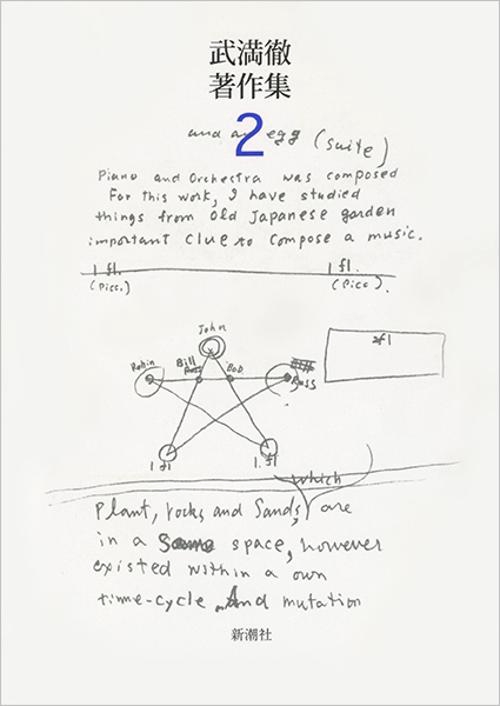 武満徹
著作集
2
and an egg (suite)
Piano and Orchestra was composed
For this work, I have studied
things from old Japanese garden
important clue to compose a music.
1 fl. 1 fl.
(Picc.) (Picc).
John
*fl
Robin Bill Bob
Ross Ross
1 fl 1. fl
which
Plant, rocks and Sands, are
in a Same space, however
existed within a own
time-cycle and mutation
新潮社